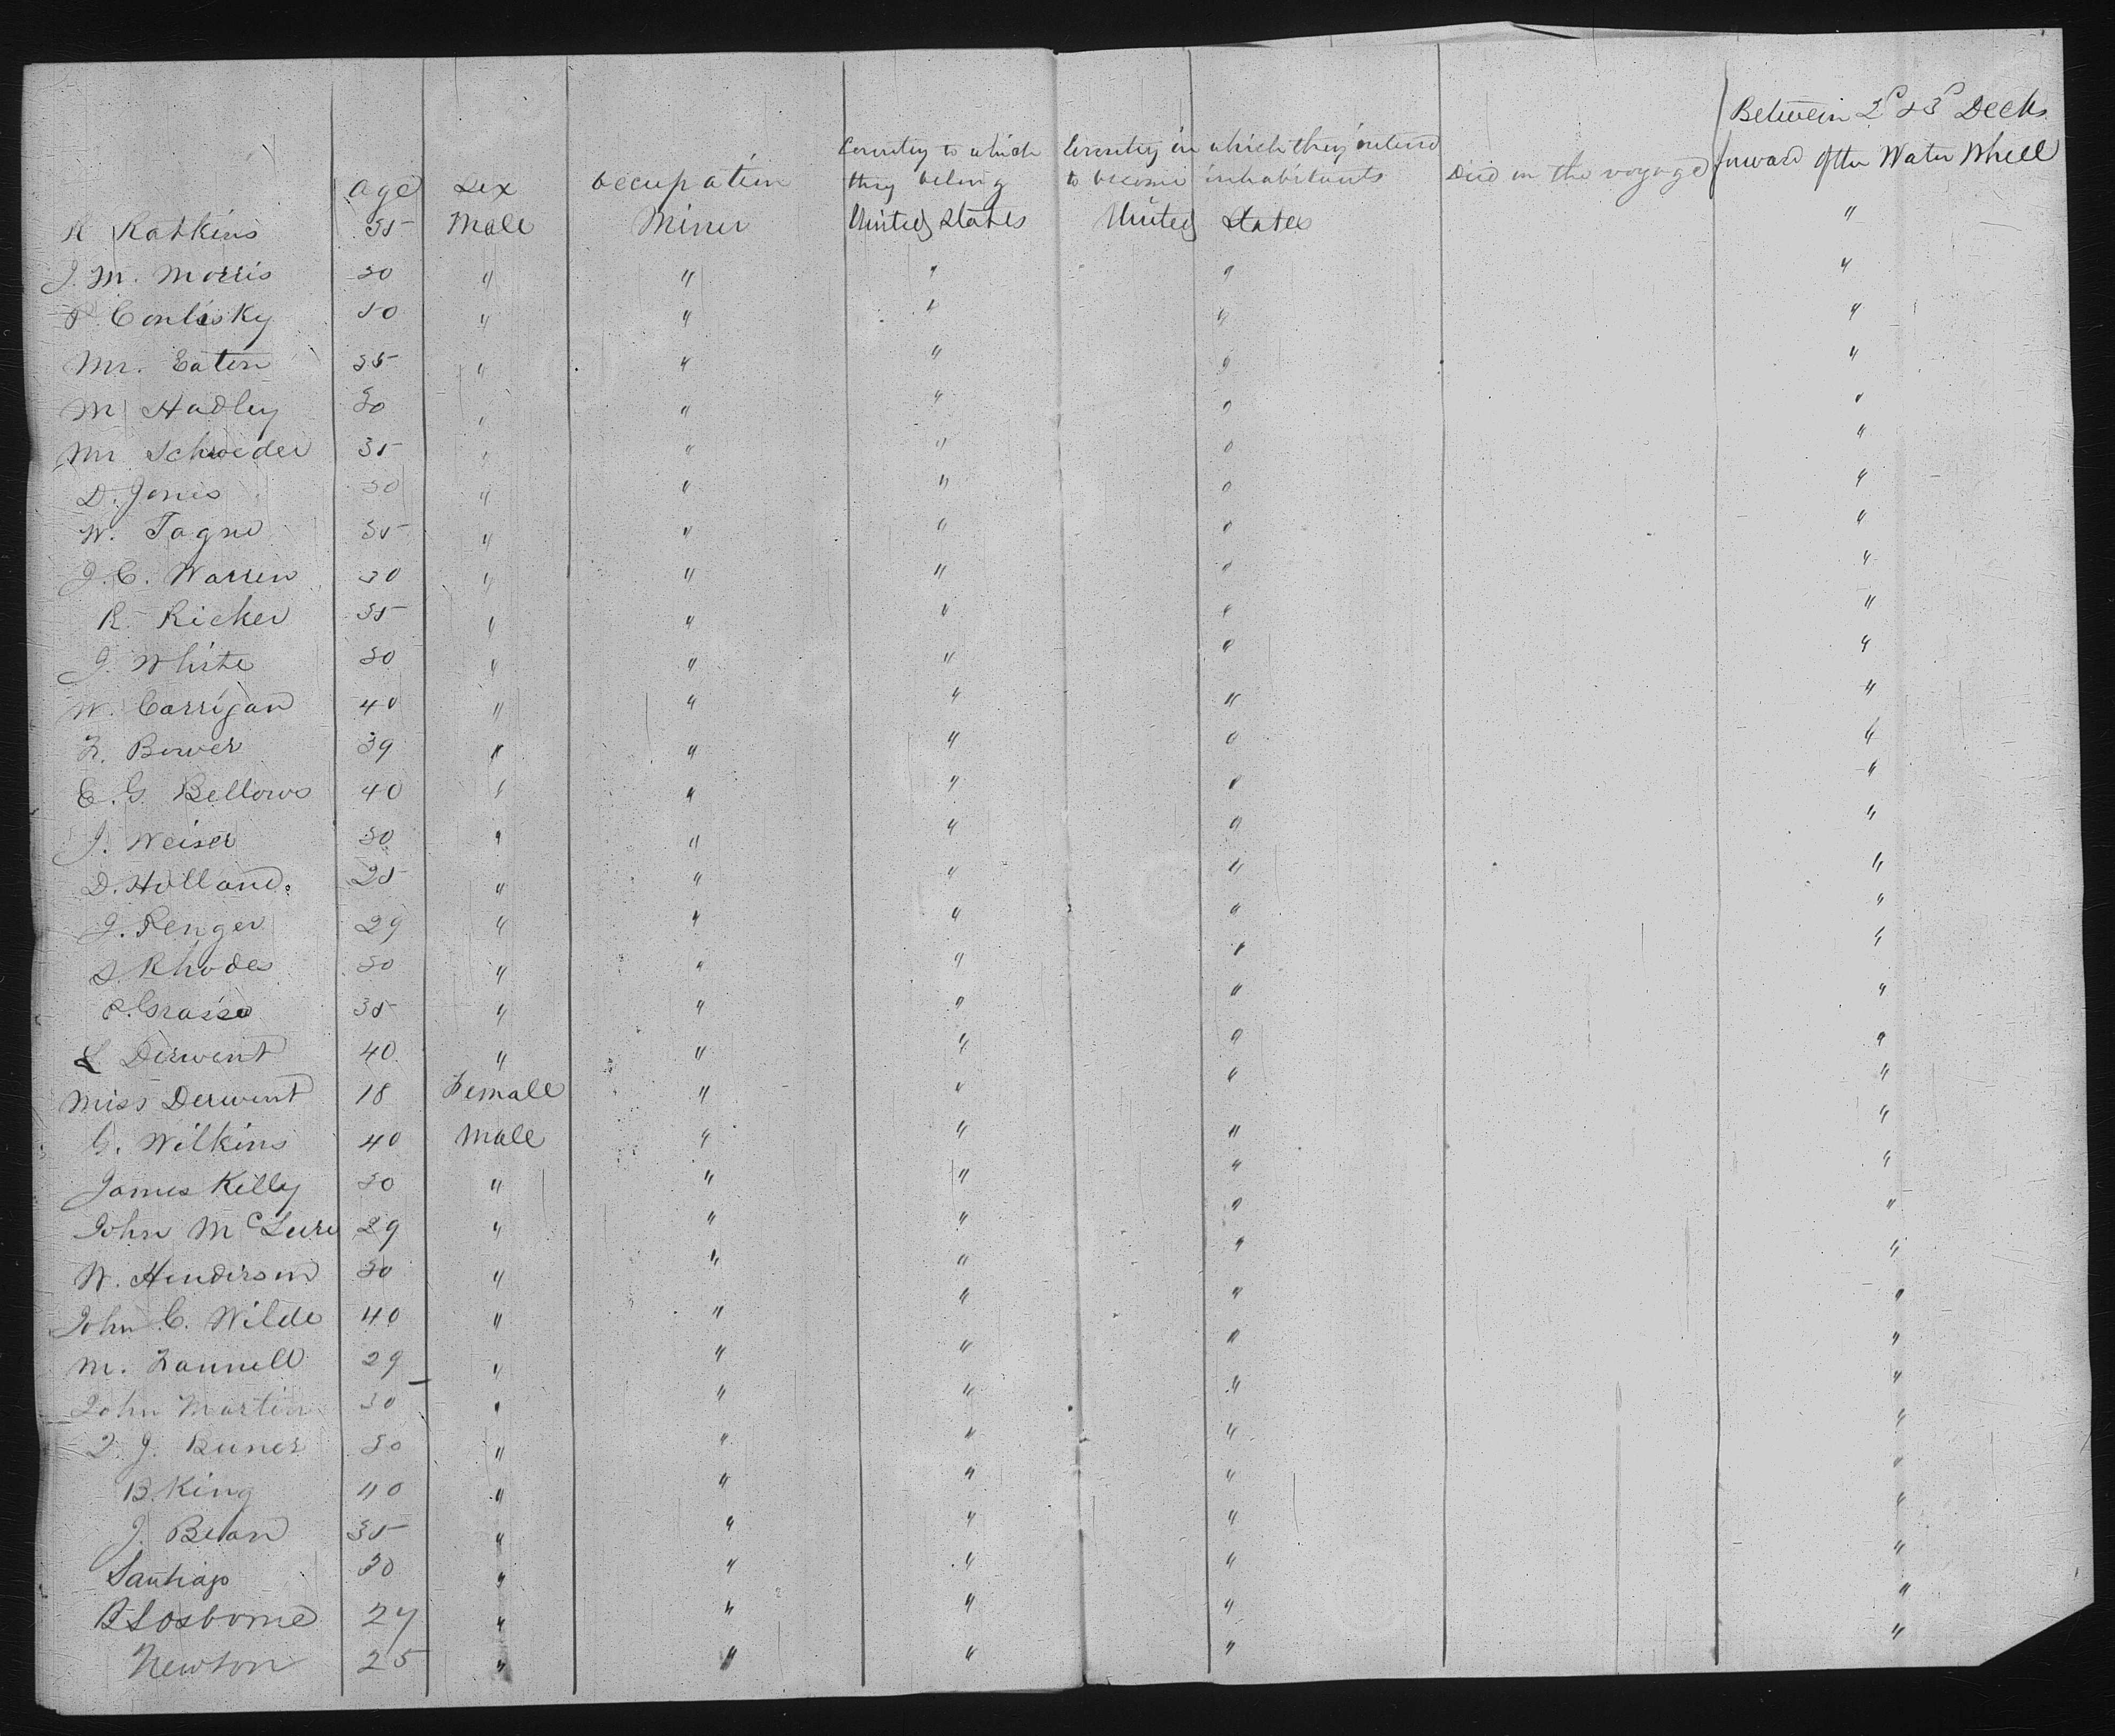 Between 2d & 3d Decks
forward of the Water Wheel
age Sex occupation Country to which they belong Country in which they intend to become inhabitants Died on the voyage
R Ratkins 35 Male Miner United States United States "
J. M. Morris 30 " " " " "
P. Conlisky 50 " " " " "
Mr. Eaton 35 " " " " "
M Hadley 30 " " " " "
Mr Schroeder 35 " " " " "
D. Jones 30 " " " " "
W. Tagne 35 " " " " "
J. C. Warren 30 " " " " "
R. Ricker 35 " " " " "
J. White 30 " " " " "
W. Carrigan 40 " " " " "
F. Bower 39 " " " " "
E. G. Bellows 40 " " " " "
J. Weiser 30 " " " " "
D. Holland. 25 " " " " "
J. Penger 29 " " " " "
S. Rhodes 30 " " " " "
P. Grasse 35 " " " " "
L Derwent 40 " " " " "
Miss Derwent 18 Female " " " "
G. Wilkins 40 Male " " " "
James Kelly 30 " " " " "
John McLure 29 " " " " "
W. Henderson 30 " " " " "
John C. Wilde 40 " " " " "
M. Fannell 29 " " " " "
John Martin 30 " " " " "
J. Runer 30 " " " " "
B. King 40 " " " " "
J. Bean 35 " " " " "
Santiago 30 " " " " "
B L Osborne 27 " " " " "
Newton 25 " " " " "